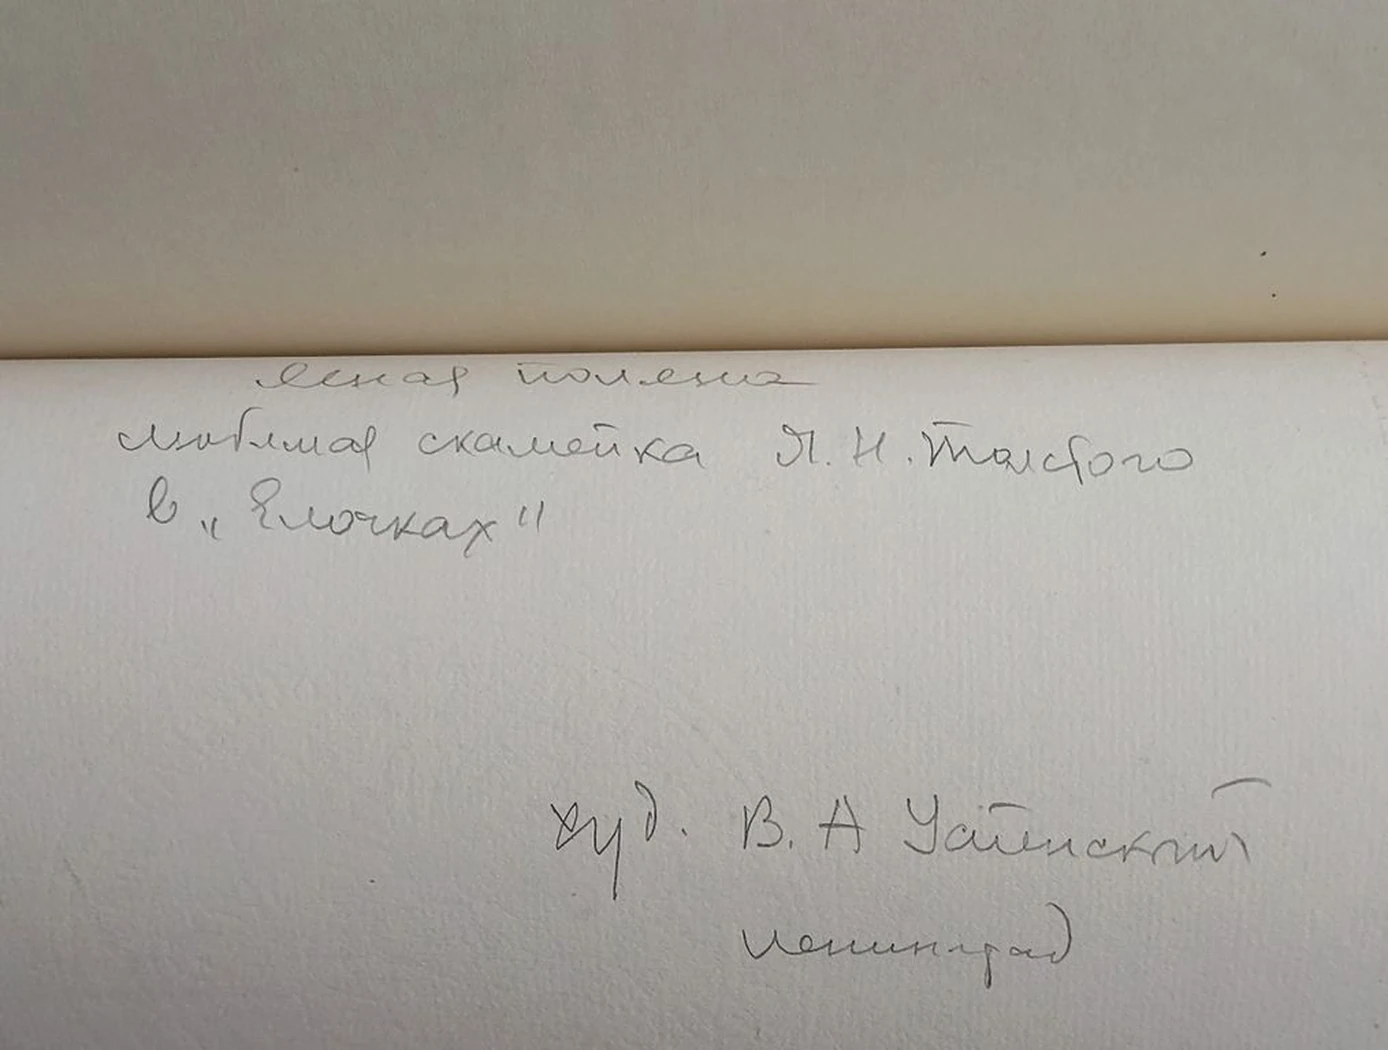 Ясная поляна
любимая скамейка Л. Н. Толстого
в „Елочках"
худ. В. А Успенский
Ленинград